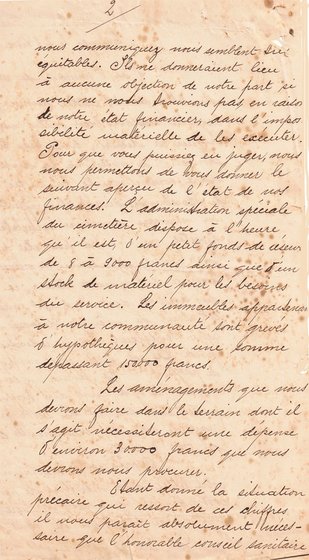 2
nous communiquez nous semblent très
équitables. Ils ne donneraient lieu
à aucune objection de notre part si
nous ne nous trouvions pas en raison
de notre état financier, dans l'impos
sibilité matérielle de les exécuter.
Pour que vous puissiez en juger, nous
nous permettons de vous donner le
suivant aperçu de l'état de nos
finances. L'administration spéciale
du cimetière dispose à l'heure
qu'il est, d'un petit fonds de réserve
de 8 à 9000 francs ainsi que d'un
stock de matériel pour les besoins
du service. Les immeubles appartenant
à notre communauté sont grevés
d'hypothèques pour une somme
dépassant 150000 francs.
Les aménagements que nous
devrons faire dans le terrain dont il
s'agit necessiteront une dépense
d'environ 30000 francs que nous
devrons nous procurer.
Etant donné la situation
précaire qui ressort de ces chiffres
il nous paraît absolument néces-
saire que l'honorable conseil sanitaire